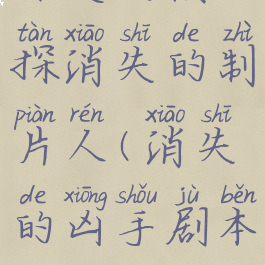 tàn xiāo shī de zhì
探消失的制
piàn rén xiāo shī
片人(消失
de xiōng shǒu jù běn
的凶手剧本